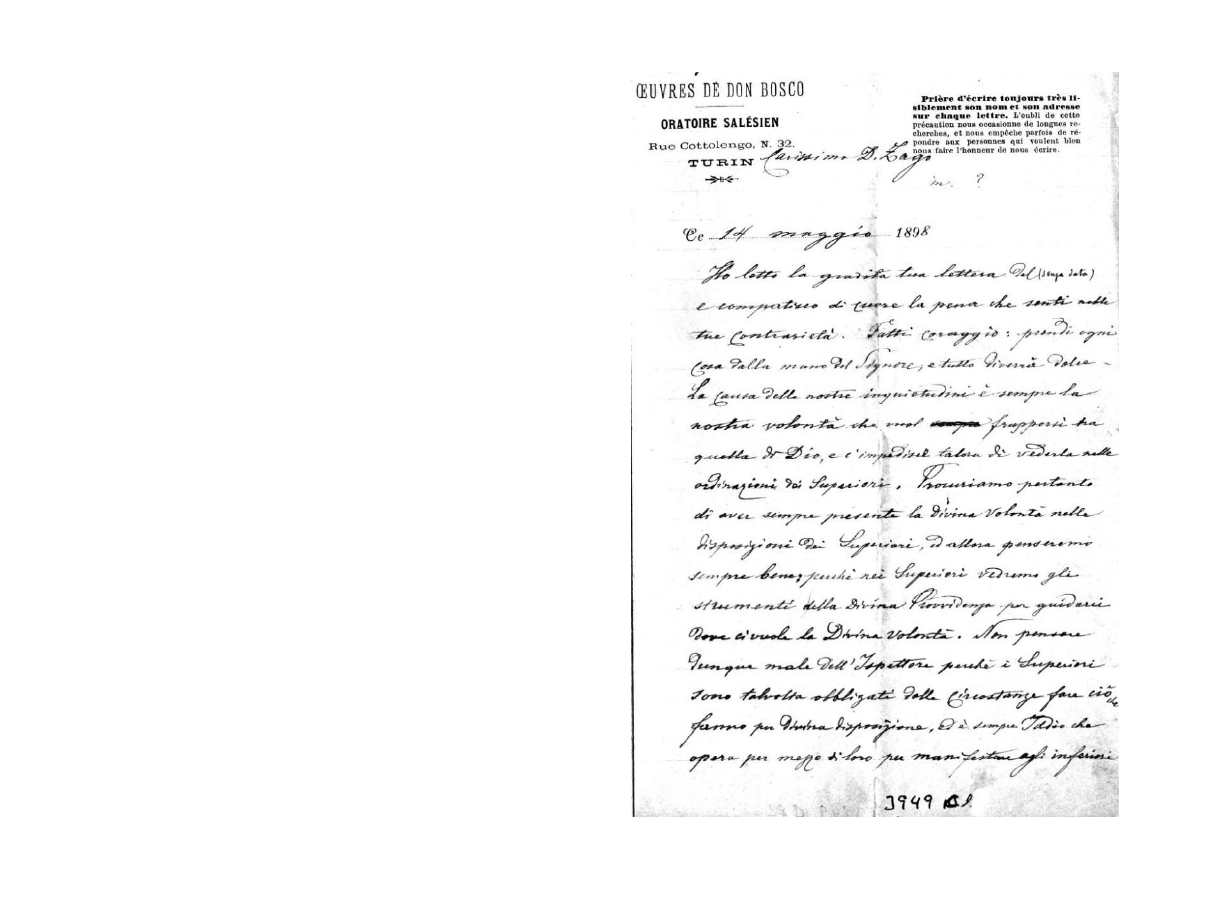 ŒUVRES DE DON BOSCO
ORATOIRE SALÉSIEN
Rue Cottolengo, N. 32.
TURIN
Prière d'écrire toujours très li-
siblement son nom et son adresse
sur chaque lettre. L'oubli de cette
précaution nous occasionne de longues re-
cherches, et nous empêche parfois de ré-
pondre aux personnes qui veulent bien
nous faire l'honneur de nous écrire.
Carissimo D. Zago
in. ?
Ce 14 maggio 1898
Ho letto la gradita tua lettera del (senza data)
e compatisco di cuore la pena che senti nelle
tue contrarietà. Fatti coraggio: prendi ogni
cosa dalla mano del Signore, e tutto diverrà dolce -
La causa delle nostre inquietudini è sempre la
nostra volontà che vuol sempre frapporsi tra
quella di Dio, e c'impedisce talora di vederla nelle
ordinazioni dei Superiori. Procuriamo pertanto
di aver sempre presente la divina Volontà nelle
disposizioni dei Superiori, ed allora penseremo
sempre bene; perché nei Superiori vedremo gli
strumenti della Divina Provvidenza per guidarci
dove ci vuole la Divina Volontà. Non pensare
dunque male dell'Ispettore perchè i Superiori
sono talvolta obbligati dalle circostanze fare ciò che
fanno per Divina disposizione, ed è sempre Iddio che
opera per mezzo di loro per manifestare agli inferiori
3949